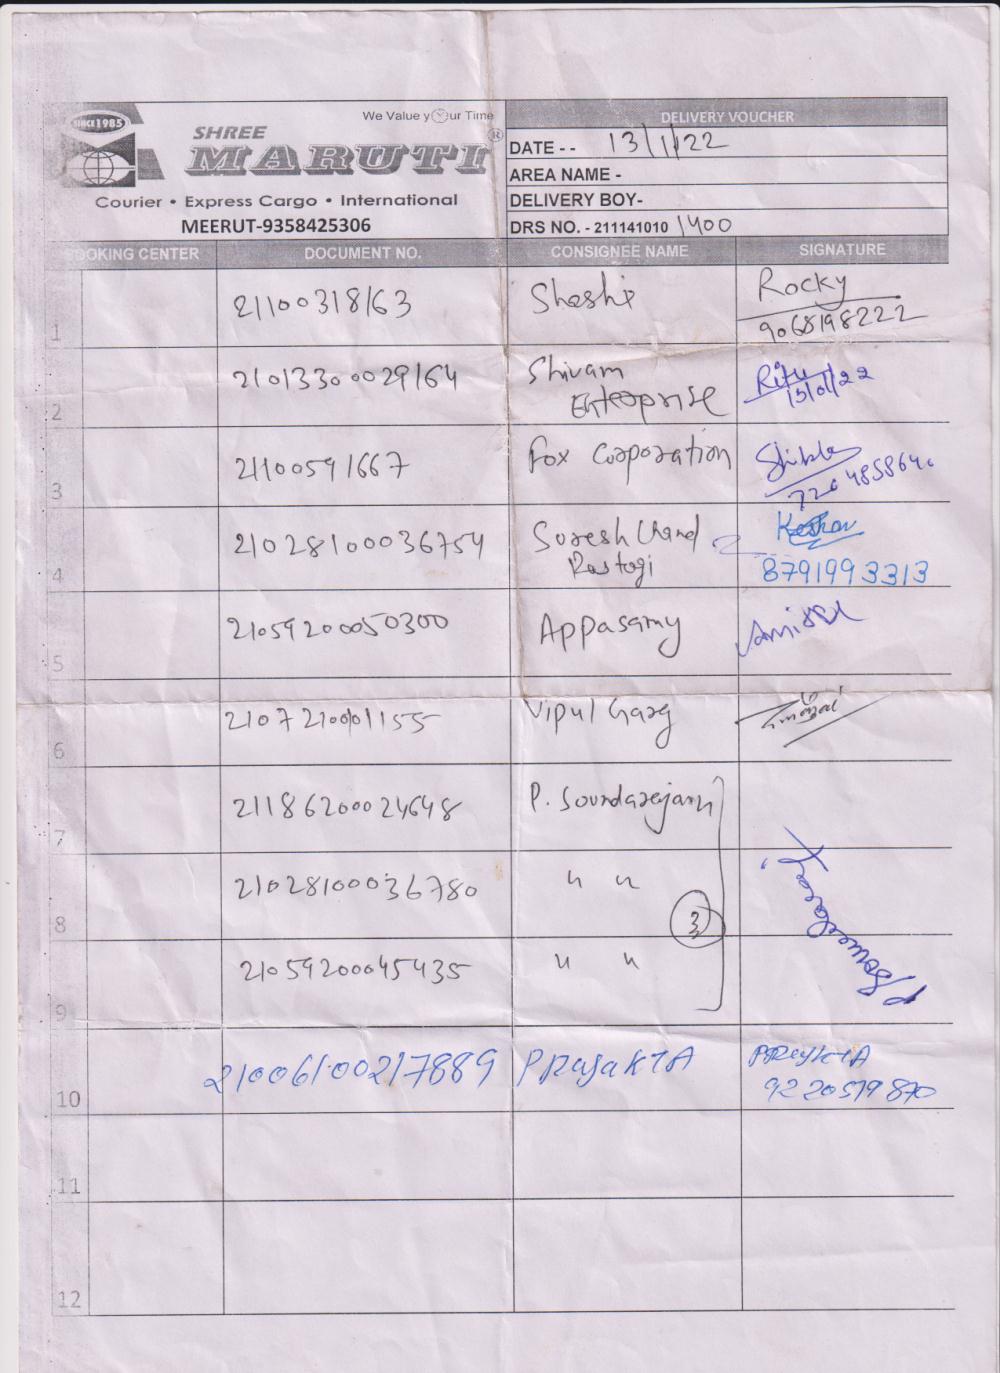 SINCE1985
We Value your Time
SHREE
MARUTI ®
Courier • Express Cargo • International
MEERUT-9358425306
DELIVERY VOUCHER
DATE - - 13/1/22
AREA NAME -
DELIVERY BOY-
DRS NO. - 211141010 1400
OKING CENTER DOCUMENT NO. CONSIGNEE NAME SIGNATURE
1 21100318163 Shashi Rocky
9068198222
2 21013300029164 Shivam Ritu
Enterprise 13/01/22
3 21100591667 Fox Corporation
4 21028100036754 Suresh Chand Keshav
Rastogi 8791993313
5 21059200050300 Appasamy
6 2107210001155 Vipul Garg
7 21186200024648 P. Soundarejann
8 21028100036780 " "
3
9 21059200045435 " "
10 21006100217889 PRAJAKTA
9220519870
11
12